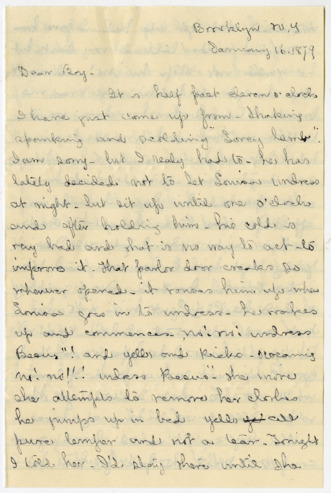 Brooklyn N.Y
January 16. 1879
Dear Boy.
It is half past eleven o'clock
I have just come up from shaking
spanking and scolding "Lovey lamb".
I am sorry - but I really had to - he has
lately decided not to let Louisa undress
at night. but sit up until one o'clock
and after holding him - his cold is
very bad and that is no way to act to
improve it. That parlor door creaks so
whenever opened - it rouses him up when
Louisa goes in to undress - he wakes
up and commences - no! no! undress
and yells and kicks -
no! no!!! the more
she attempts to remove her clothes
he jumps up in bed yells all
pure temper and not a tear. Tonight
I told her. I'd stay there until she